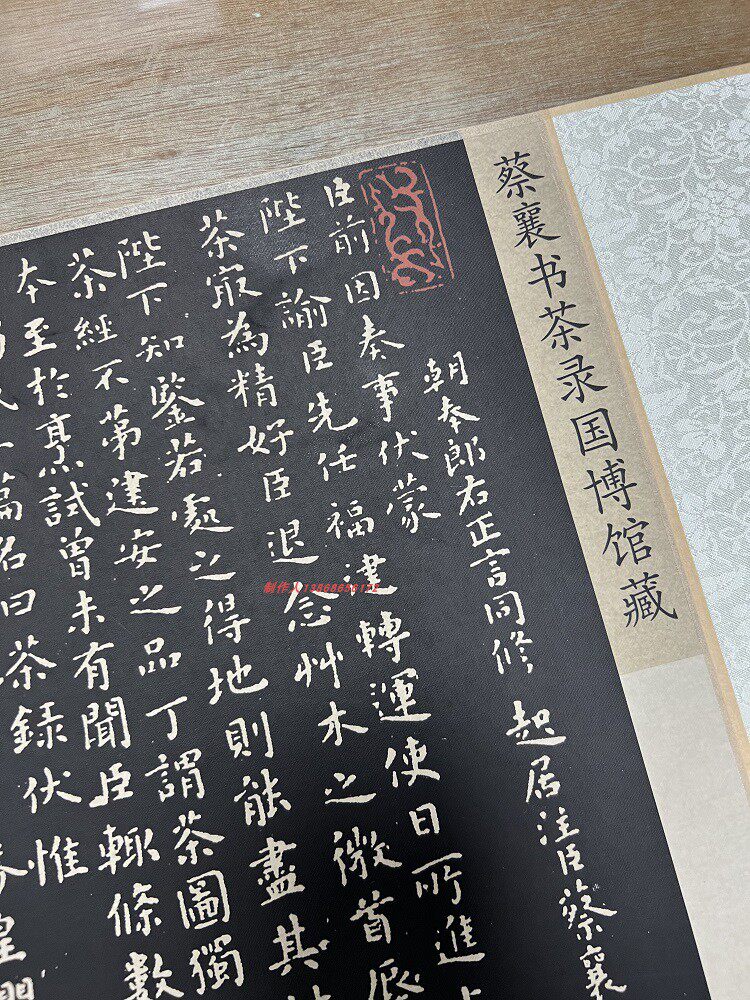 蔡襄书茶录国博馆藏
朝奉郎右正言同修 起居注臣蔡襄
臣前因奏事伏蒙
陛下諭臣先任福建轉運使日所進
茶冣為精好臣退念艸木之微首辱
陛下知鑒若處之得地則能盡其
茶經不第建安之品丁謂茶圖獨
本至於烹試曾未有聞臣輙條數
篇名曰茶錄伏惟
制作人